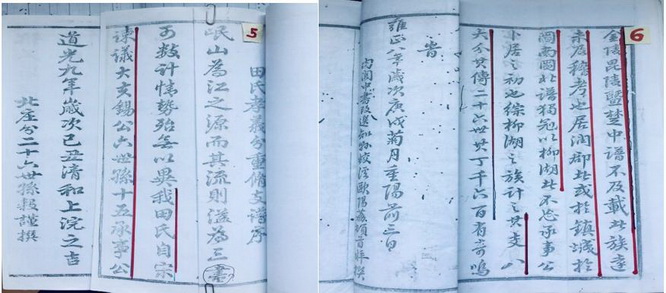 5
田氏孝義分重脩支譜序
岷山為江之源而其流則滋為三
可數計情勢殆無以異我田氏自宗
諫議大夫錫公六世孫十五承事公
道光九年歲次己丑清和上浣之吉
北崖分二十六世孫謹撰
6
金陵毘陵豎楚中譜不及載北族遠
未及稽考也居潤郡北或於鎮城於
閩南閩北譜獨冠以柳湖北不忘承事公
卜居之初也綜柳湖之族計之其支八
大分其傳二十六世其丁千六百有奇嗚
旹
雍正八年歲次庚戌菊月重陽前三日
內閣中書改選知歐陽頓首拜撰